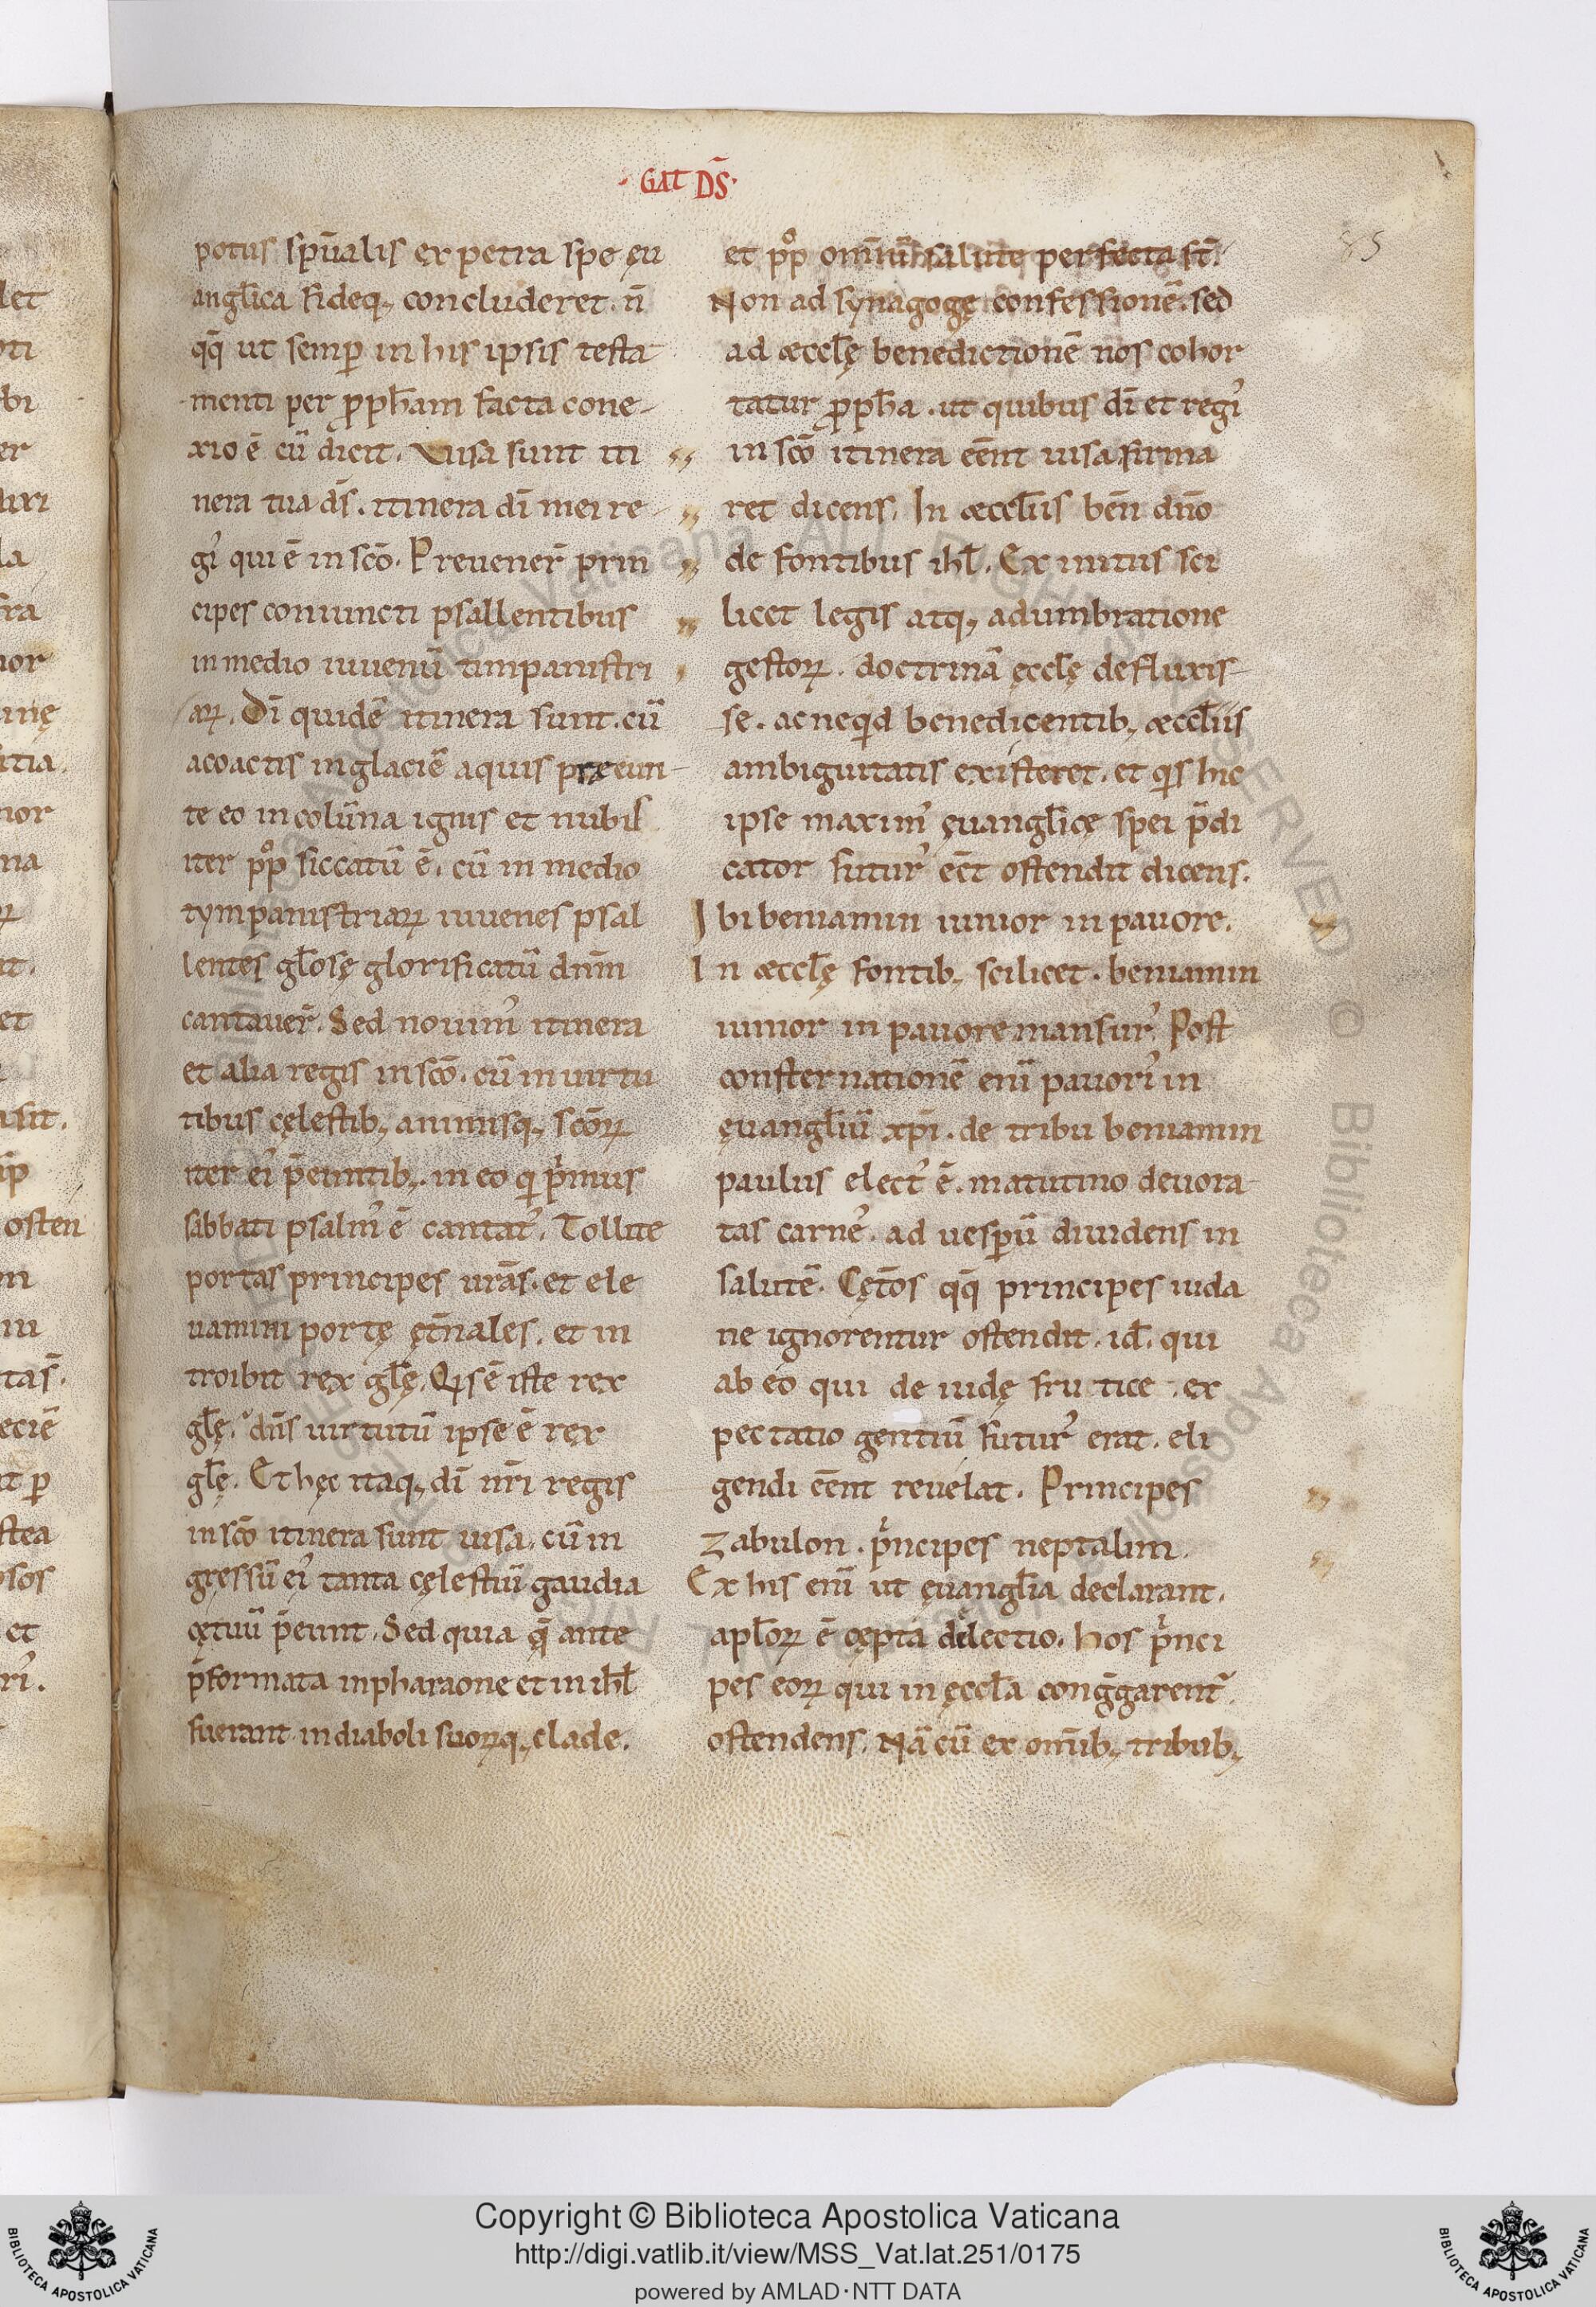 · GAT DS̄·
85
potus spūalis ex petra spe ęu
angl̄ica fideq; concluderet. n̄
qq̄ ut semꝑ in his ipsis testa
menti per ꝓph̄am facta cone-
xio ē cū dicit. Visa sunt iti
nera tua ds̄. itinera dī mei re
gi᾽ qui ē in scō. Preuener̄ prin
cipes coniuncti psallentibus
in medio iuuenū timpanistri
aꝝ. Dī quidē itinera sunt. cū
acoactis in glaciē aquis preeun-
te eo in colūna ignis et nubis
iter pp̊ siccatū ē. cū in medio
tympanistriaꝝ iuuenes psal
lentes gl̄osę glorificatū dnm̄
cantauer̄. Sed nouim᾽ itinera
et alia regis in scō. cū in uirtu
tibus cęlestib; animisq; scōꝝ
iter ei᾽ p̄euntib;. in eo qi primus
sabbati psalm᾽ ē cantat᾽. Tollite
portas principes urās. et ele
uamini portę ęt̄nales. et in
troibit rex gl̄ę. Qis ē iste rex
gl̄ę. dn̄s uirtutū ipse ē rex
gl̄ę. Et hęc itaq; dī nr̄i regis
in scō itinera sunt uisa. cū in
gressū ei᾽ tanta cęlestiū gaudia
cętuū p̄eunt. Sed quia q̄ ante
p̄formata in pharaone et in ihl̄
fuerant in diaboli suoꝝq; clade.
et pp̊ omniū salute perfecta st̄.
Non ad synagogę confessionē. sed
ad æccl̄ę benedictionē nos cohor
tatur ꝓph̄a. ut quibus dī et regi᾽
in scō itinera eēnt uisa firma
ret dicens. In æccl̄iis ben̄ dn̄o
de fontibus ihl̄. Ex initiis sci
licet legis atq; adumbratione
gestoꝝ. doctrinā ęccl̄ę defluxis-
se. ac neqid benedicentib; æccl̄iis
ambiguitatis existeret. et qis hic
ipse maxim᾽ ęuangl̄icę spei p̄di
cator futur᾽ eēt ostendit dicens.
Ibi beniamin iunior in pauore.
In æccl̄ę fontib; scilicet. beniamin
iunior in pauore mansur᾽. Post
consternationē enī pauori᾽ in
ęuangl̄iū xpī. de tribu beniamin
paulus elect᾽ ē. matutino deuora
tas carne᾽. ad uesꝑū diuidens in
salutē. Cęt̄os qq̄ principes iuda
ne ignorentur ostendit. id̄. qui
ab eo qui de iudę frutice. ex
pectatio gentiū futur᾽ erat. eli
gendi eēnt reuelat. Principes
zabulon. principes neptalim.
Ex his enī ut ęuangl̄ia declarant.
apl̄oꝝ ē cępta dilectio. hos princi
pes eoꝝ qui in ęccl̄a cong̊garent᾽.
ostendens. Nā cū ex omīb; tribub;
Copyright © Biblioteca Apostolica Vaticana
http://digi.vatlib.it/view/MSS_Vat.lat.251/0175
powered by AMLAD·NTT DATA